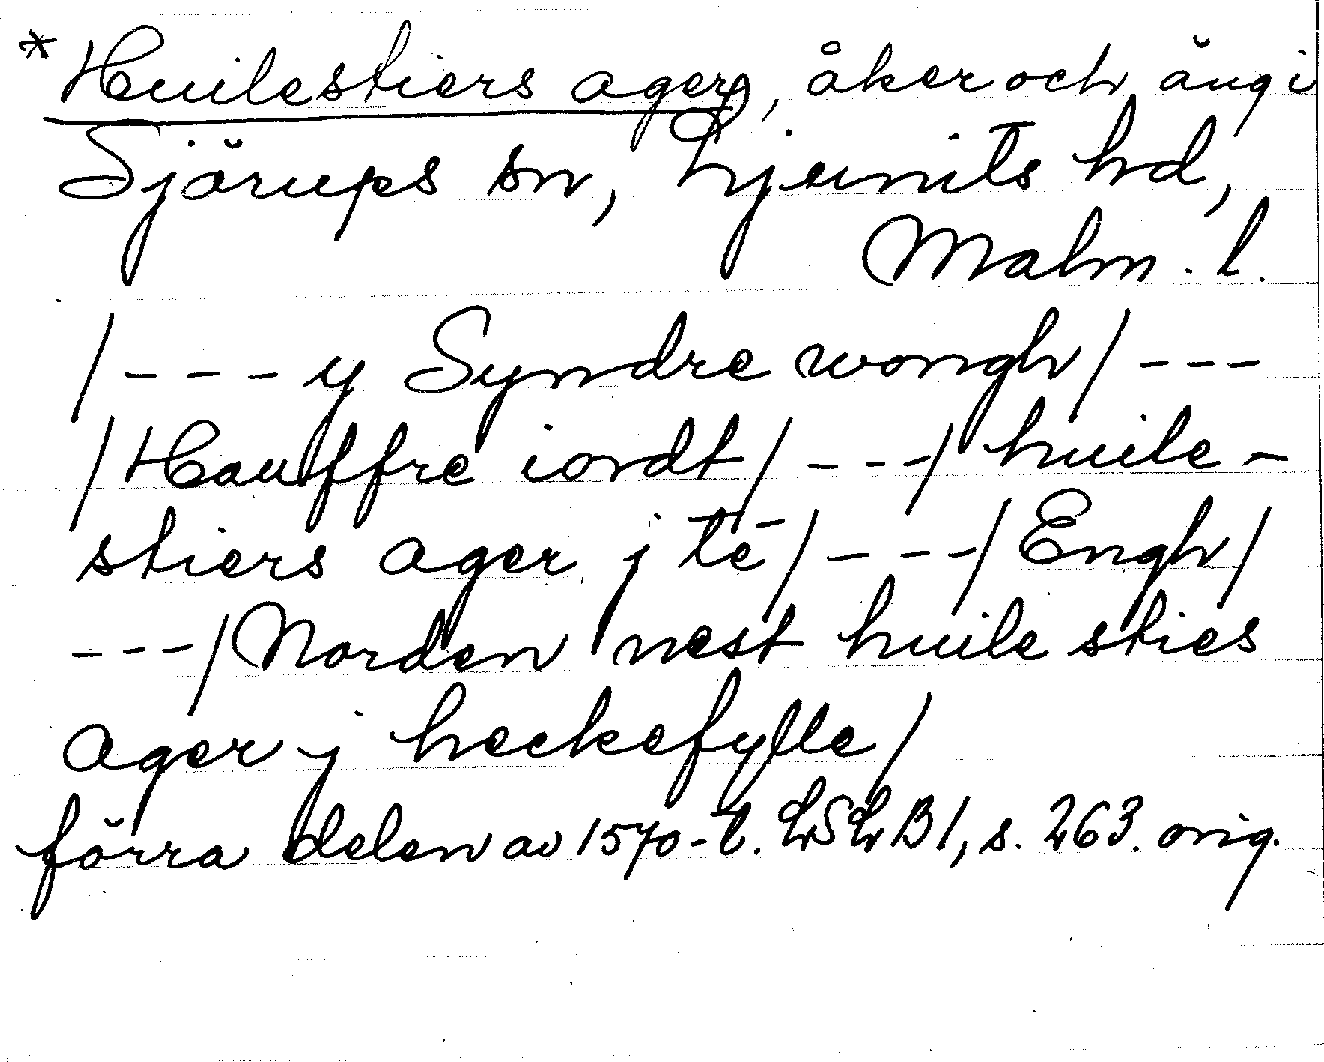 * Huilestiers ager, åker och äng i
Sjörups sn, Ljunits hd,
Malm. l.
/---y Syndre wongh/---
/Hauffre iordt/---/huile-
stiers ager j tē/---/Engh/
---/Norden nest huile sties
ager j heckefylle/
förra delen av 1570-t. LSLB1, s. 263. orig.